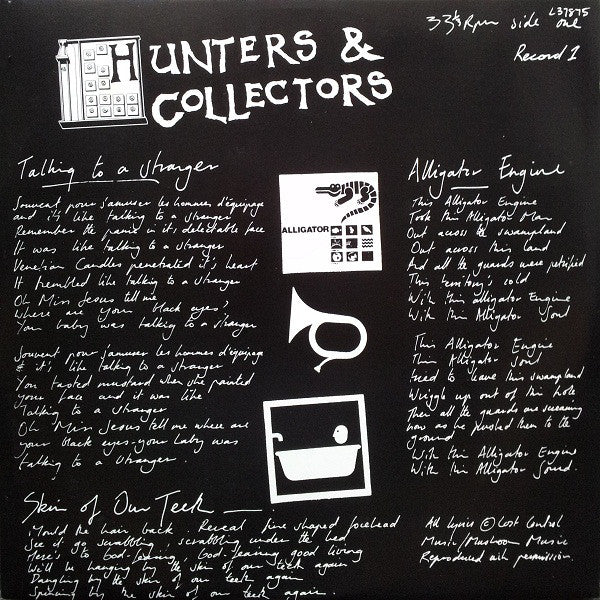 HUNTERS &
COLLECTORS
33⅓ Rpm side one
L37875
Record 1
Talking to a stranger
Souvent pour s'amuser les hommes d'équipage
and it's like talking to a stranger
Remember the panic in its delectable face
It was like talking to a stranger
Venetian Candles penetrated it's heart
It trembled like talking to a stranger
Oh Miss Jesus tell me
where are your black eyes,
Your baby was talking to a stranger
Souvent pour s'amuser les hommes d'équipage
& it's like talking to a stranger
You tasted mustard when she painted
your face and it was like
Talking to a stranger
Oh Miss Jesus tell me where are
your black eyes - your baby was
talking to a stranger.
ALLIGATOR
Alligator Engine
This Alligator Engine
Took this Alligator Man
Out across the swampland
Out across this land
And all the guards were petrified
This territory's cold
With this alligator Engine
With this Alligator Soul
This Alligator Engine
This Alligator Soul
tried to leave this swampland
Wriggle up out of this hole
Then all the guards are screaming
now as he pushed them to the
ground
With this Alligator Engine
With this Alligator Sound.
Skin of Our Teeth
Mould the hair back. Reveal fine shaped forehead
See it go scrabbling, scrabbling under the bed
Here's to God-fearing, God-fearing good living
We'll be hanging by the skin of our teeth again
Dangling by the skin of our teeth again
Spinning by the skin of our teeth again.
All lyrics © Lost Control
Music/Mushroom Music
Reproduced with permission.